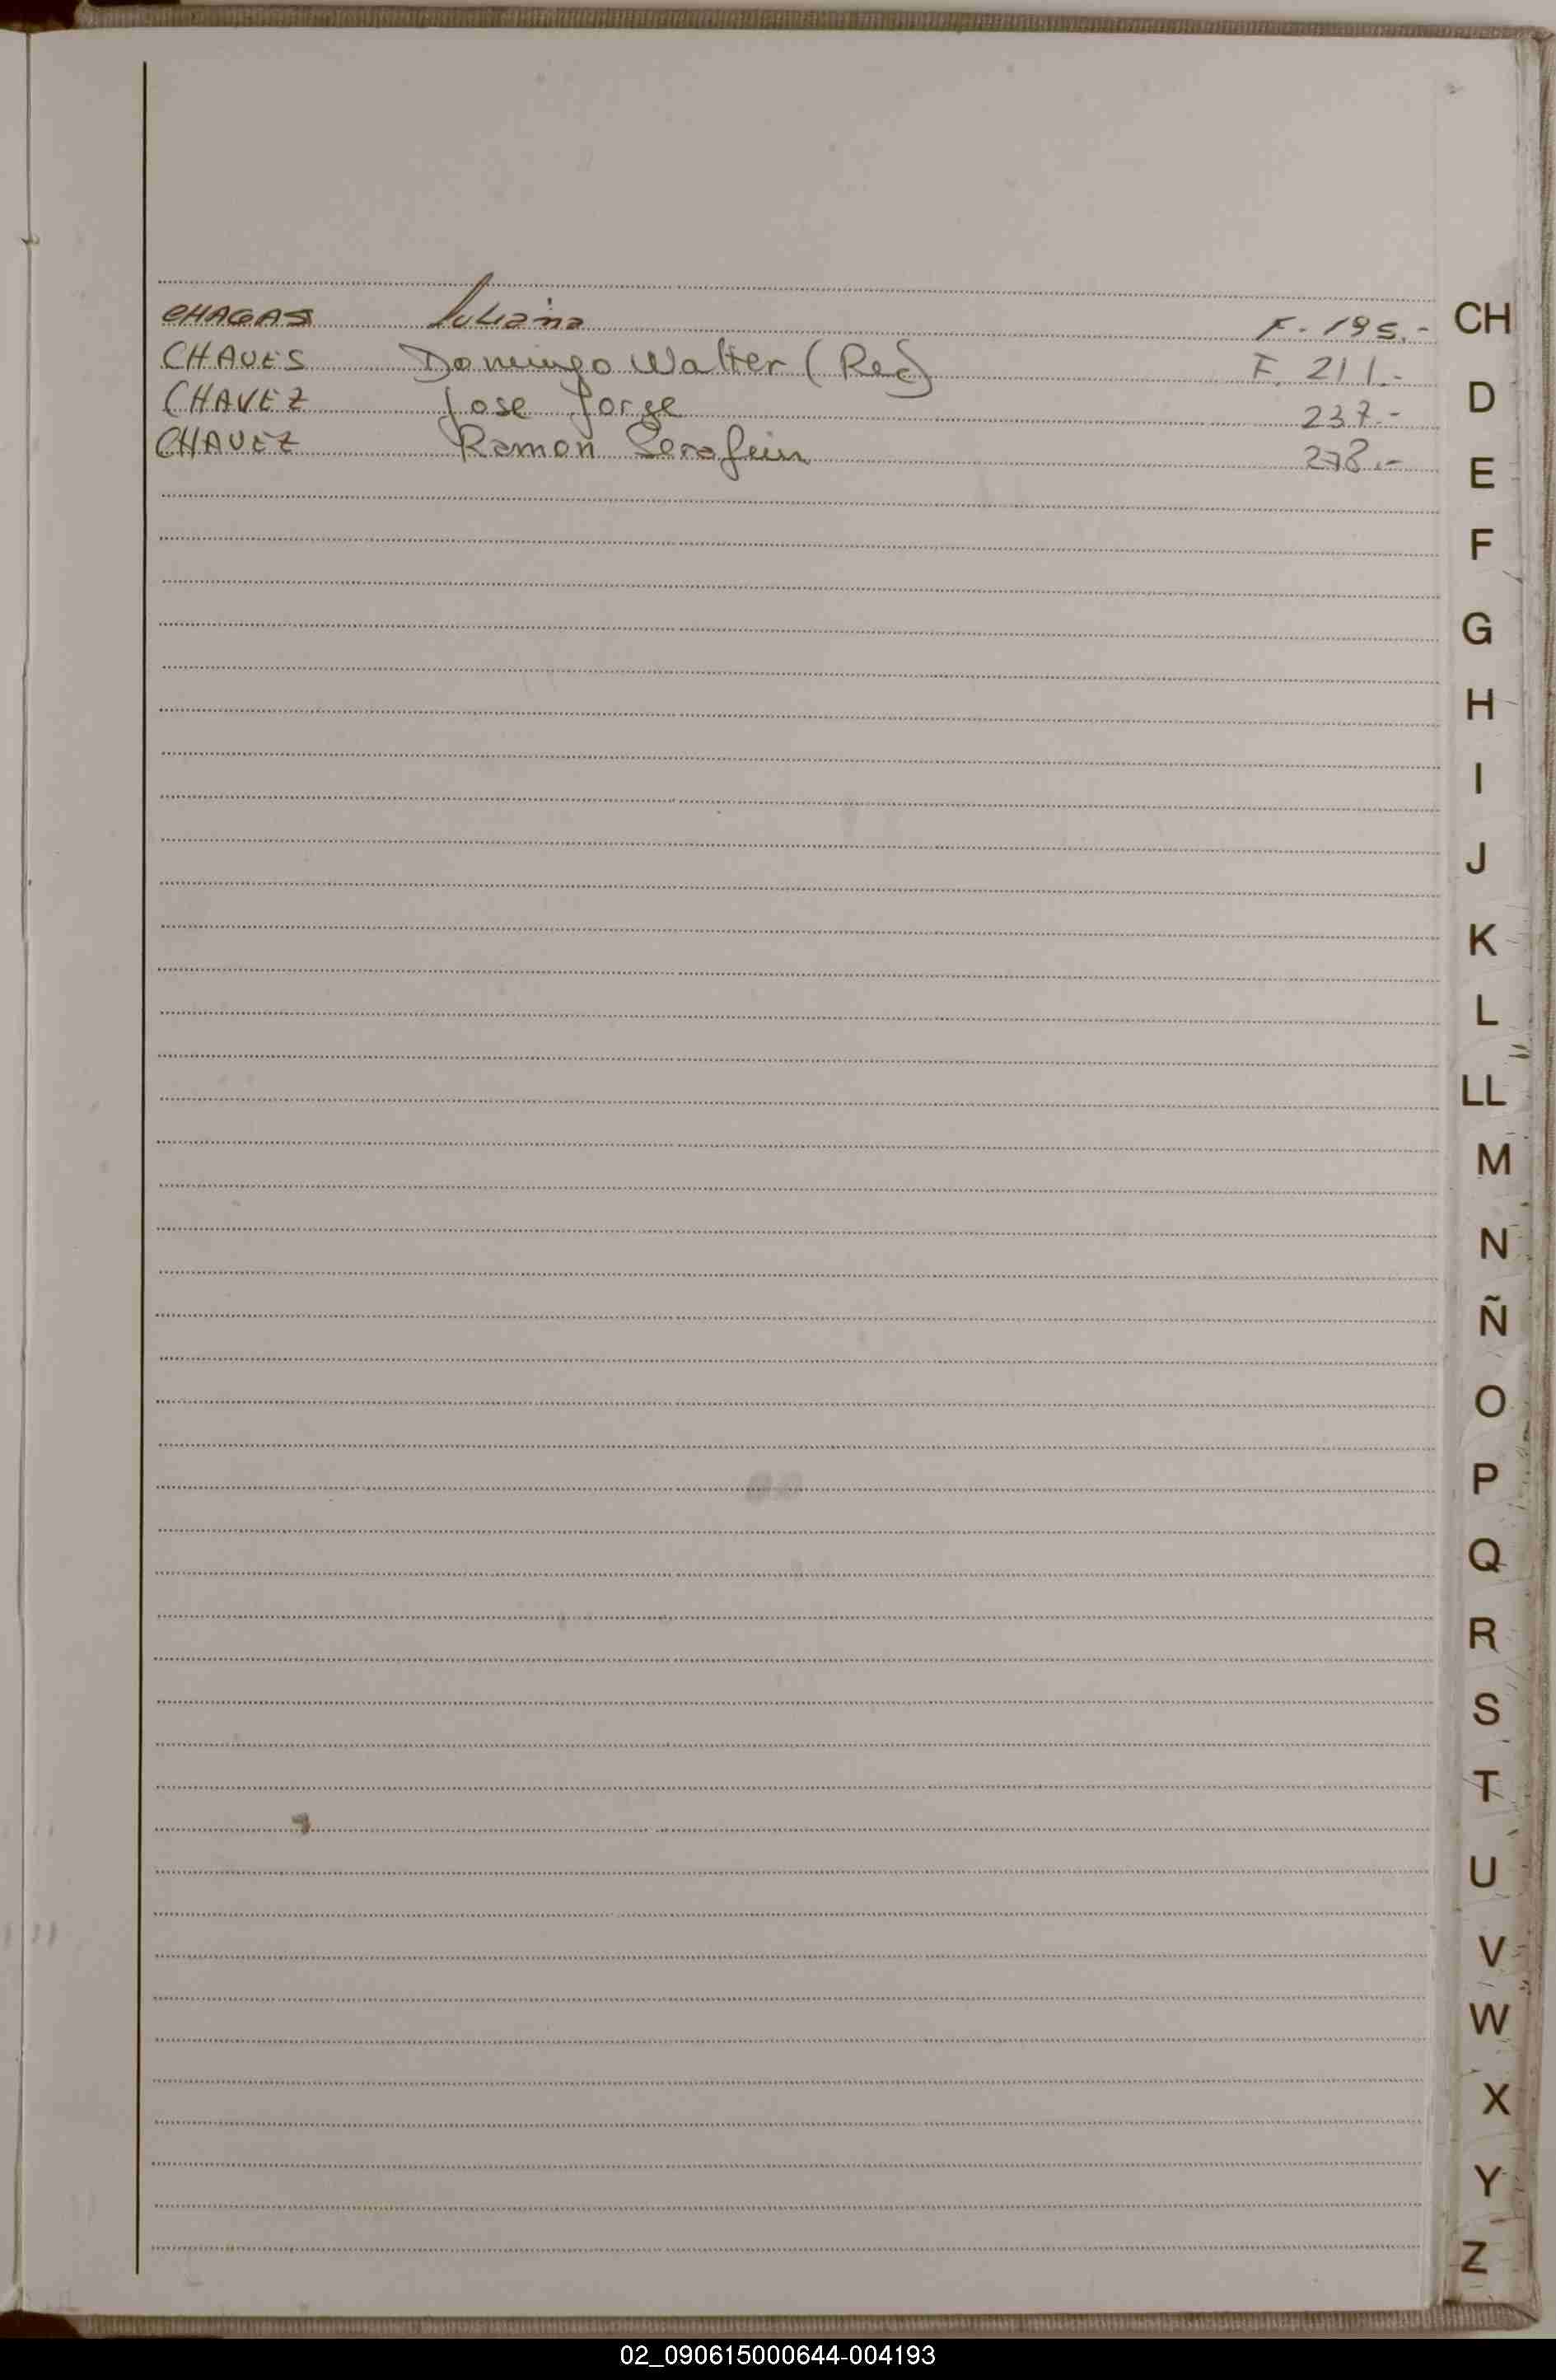 CHAGAS Juliana F. 195.-
CHAVES Domingo Walter (Rec) F. 211.-
CHAVEZ Jose Jorge 237.-
CHAVEZ Ramon Serafin 278.-
CH
D
E
F
G
H
I
J
K
L
LL
M
N
Ñ
O
P
Q
R
S
T
U
V
W
X
Y
Z
02_090615000644-004193